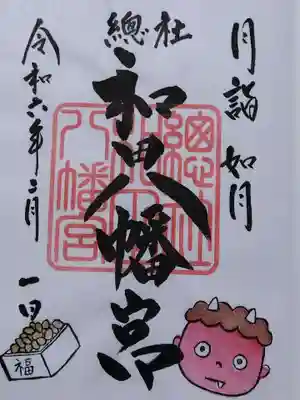 月詣 如月
總社
和田八幡宮
總社
八幡宮
令和六年二月一日
福